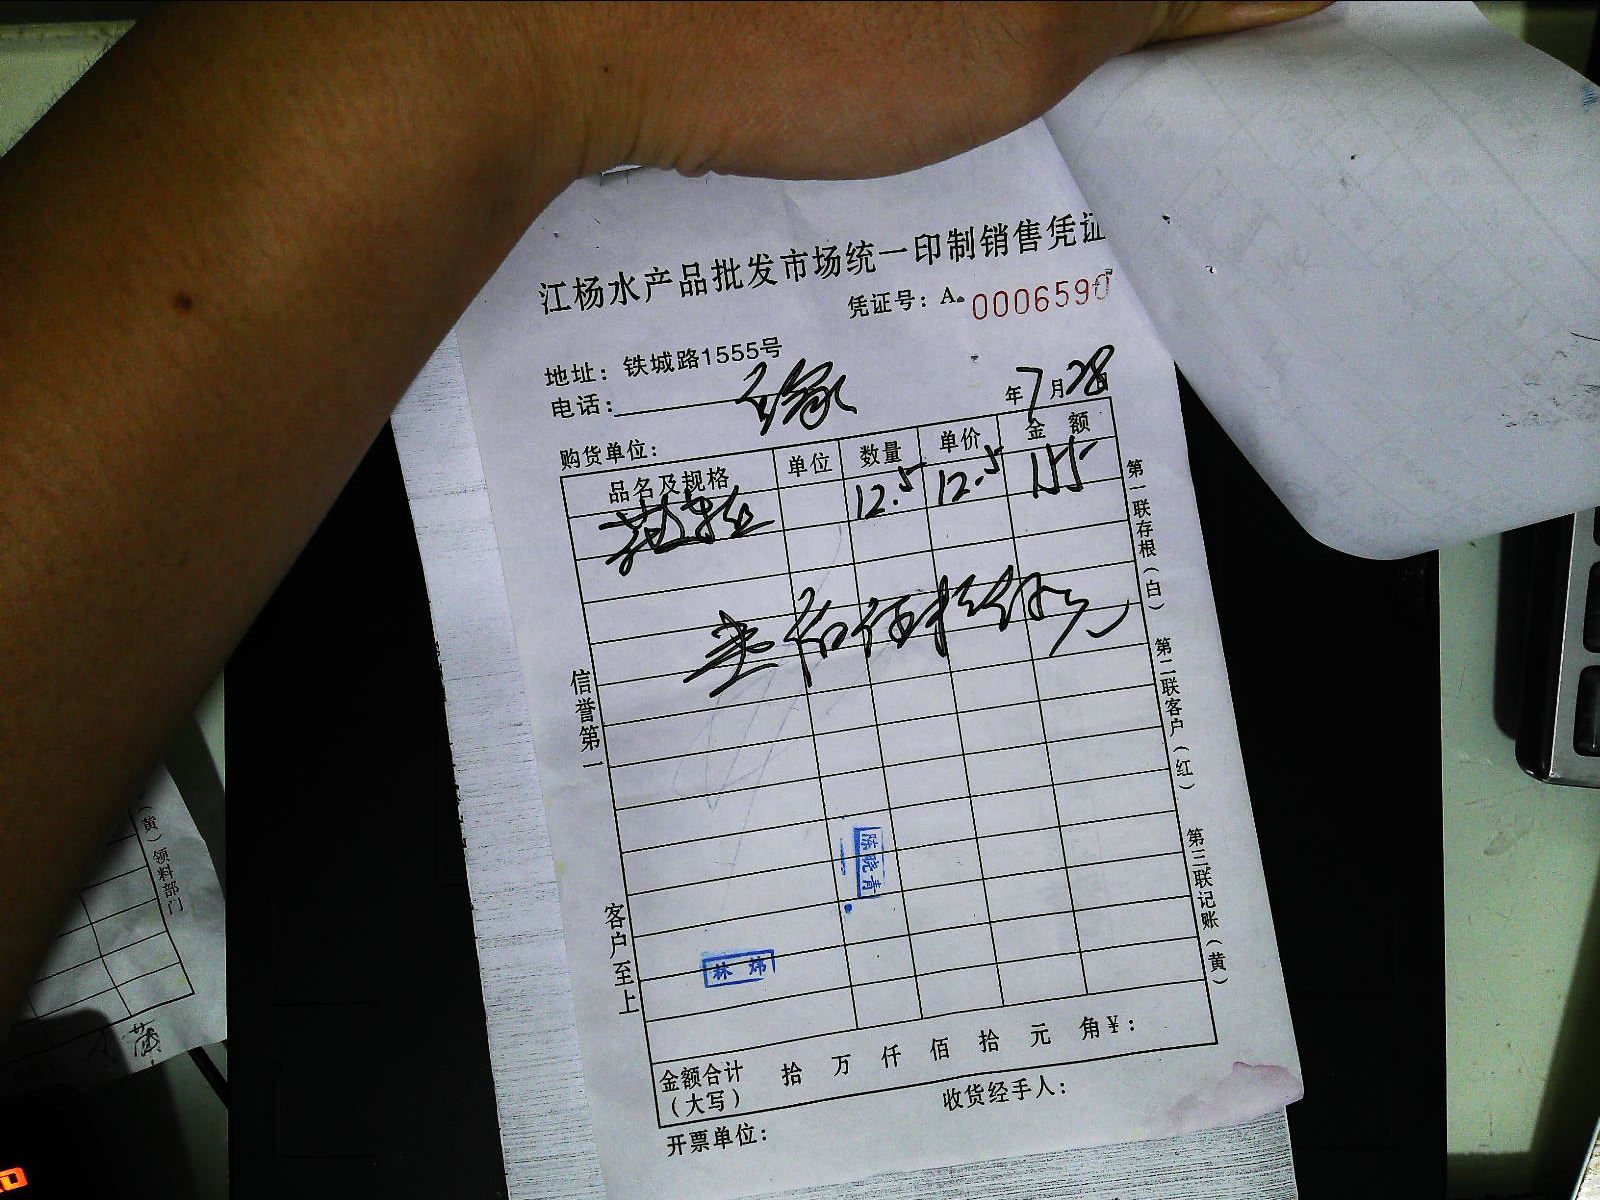 江杨水产品批发市场统一印制销售凭证
凭证号：A. 0006590
地址：铁城路1555号
电话：
年 7 月 28
购货单位：
品名及规格 单位 数量 单价 金 额
12.5 12.5 155
第一联存根（白）
第二联客户（红）
第三联记账（黄）
信誉第一
客户至上
陈晓青
林炜
金额合计（大写） 拾 万 仟 佰 拾 元 角 ¥：
收货经手人：
开票单位：
（黄）领料部门